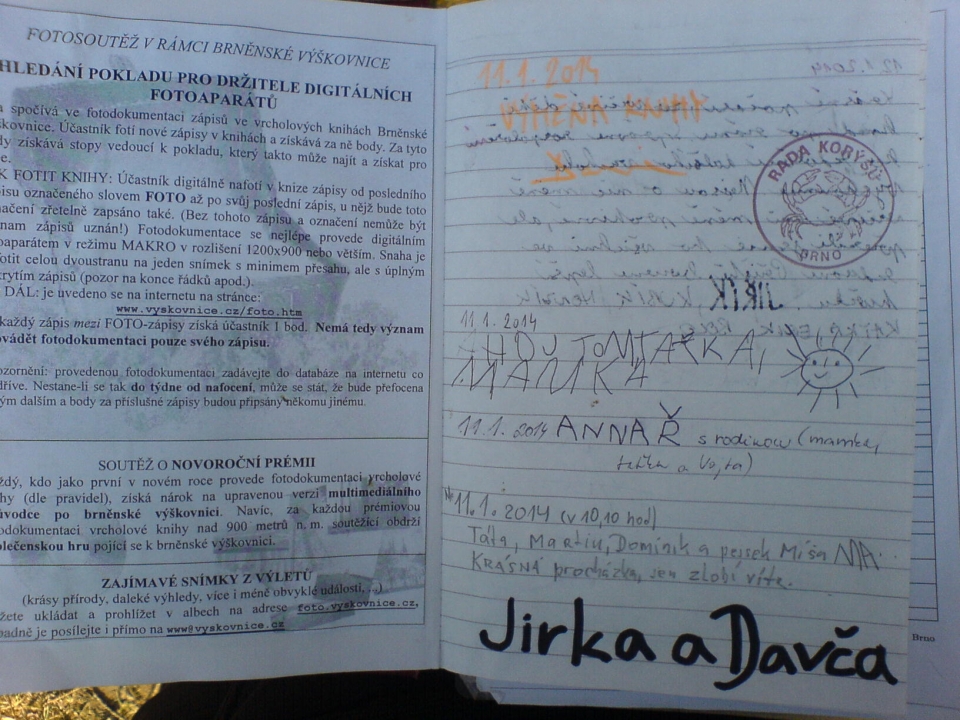 FOTOSOUTĚŽ V RÁMCI BRNĚNSKÉ VÝŠKOVNICE
HLEDÁNÍ POKLADU PRO DRŽITELE DIGITÁLNÍCH
FOTOAPARÁTŮ
a spočívá ve fotodokumentaci zápisů ve vrcholových knihách Brněnské
škovnice. Účastník fotí nové zápisy v knihách a získává za ně body. Za tyto
dy získává stopy vedoucí k pokladu, který takto může najít a získat pro
e.
K FOTIT KNIHY: Účastník digitálně nafotí v knize zápisy od posledního
pisu označeného slovem FOTO až po svůj poslední zápis, u nějž bude toto
načení zřetelně zapsáno také. (Bez tohoto zápisu a označení nemůže být
nam zápisů uznán!) Fotodokumentace se nejlépe provede digitálním
oaparátem v režimu MAKRO v rozlišení 1200x900 nebo větším. Snaha je
fotit celou dvoustranu na jeden snímek s minimem přesahu, ale s úplným
krytím zápisů (pozor na konce řádků apod.).
DÁL: je uvedeno se na internetu na stránce:
www.vyskovnice.cz/foto.htm
každý zápis mezi FOTO-zápisy získá účastník 1 bod. Nemá tedy význam
ovádět fotodokumentaci pouze svého zápisu.
ozornění: provedenou fotodokumentaci zadávejte do databáze na internetu co
dříve. Nestane-li se tak do týdne od nafocení, může se stát, že bude přefocena
kým dalším a body za příslušné zápisy budou připsány někomu jinému.
SOUTĚŽ O NOVOROČNÍ PRÉMII
ždý, kdo jako první v novém roce provede fotodokumentaci vrcholové
hy (dle pravidel), získá nárok na upravenou verzi multimediálního
ůvodce po brněnské výškovnici. Navíc, za každou prémiovou
odokumentaci vrcholové knihy nad 900 metrů n. m. soutěžící obdrží
olečenskou hru pojící se k brněnské výškovnici.
ZAJÍMAVÉ SNÍMKY Z VÝLETŮ
(krásy přírody, daleké výhledy, více i méně obvyklé události, ...)
žete ukládat a prohlížet v albech na adrese foto.vyskovnice.cz,
padně je posílejte i přímo na www@vyskovnice.cz
11.1.2014
VÝMĚNA KNIHY
RADA KORÝŠŮ
BRNO
11.1.2014
MAMKA
11.1.2014 ANNA Ř s rodinou (mamka,
a Vojta)
11.1.2014 (v 10,10 hod)
Táta, Martin, Dominik a pejsek Míša NA
KRÁSNÁ procházka, jen zlobí vítr.
Jirka a Davča
Brno